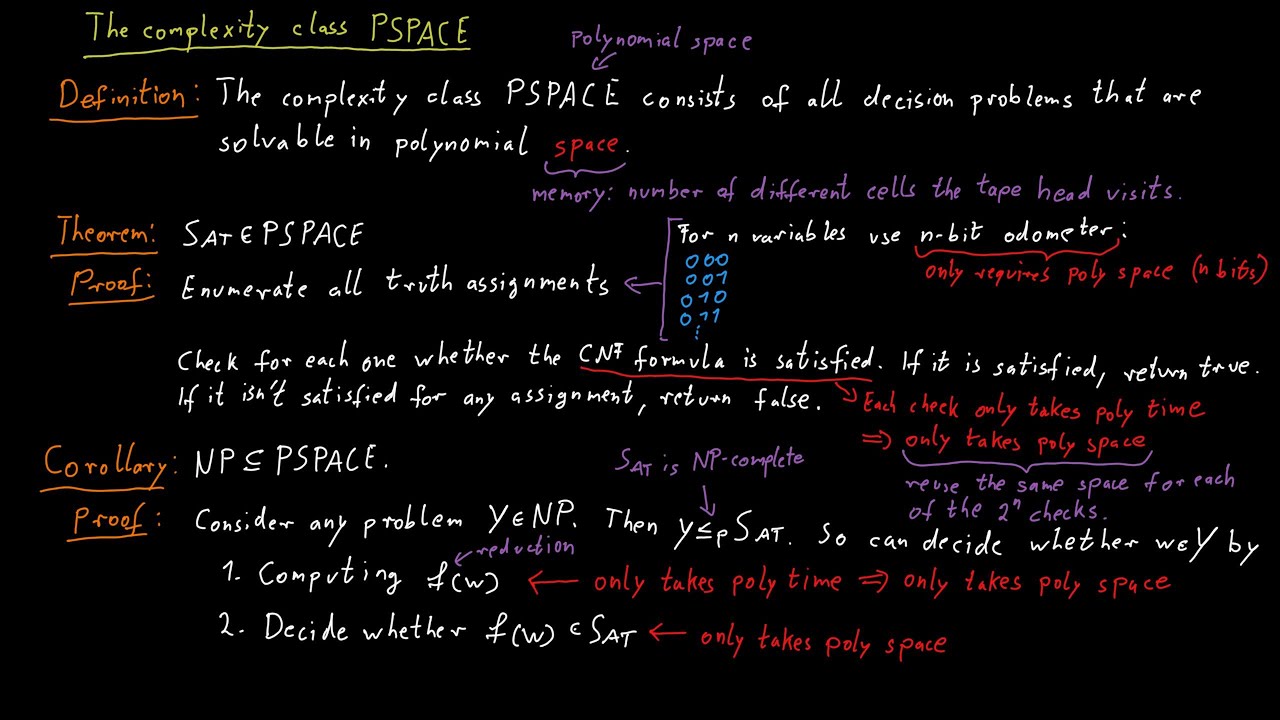 The complexity class PSPACE
polynomial space
Definition: The complexity class PSPACE consists of all decision problems that are
solvable in polynomial space.
memory: number of different cells the tape head visits.
Theorem: SAT ∈ PSPACE
For n variables use n-bit odometer:
only requires poly space (n bits)
000
001
010
011
⋮
Proof: Enumerate all truth assignments
Check for each one whether the CNF formula is satisfied. If it is satisfied, return true.
If it isn't satisfied for any assignment, return false.
Each check only takes poly time
⇒ only takes poly space
reuse the same space for each
of the 2ⁿ checks.
Corollary: NP ⊆ PSPACE.
SAT is NP-complete
Proof: Consider any problem Y ∈ NP. Then Y ≤p SAT. So can decide whether w ∈ Y by
reduction
1. Computing f(w) ← only takes poly time ⇒ only takes poly space
2. Decide whether f(w) ∈ SAT ← only takes poly space